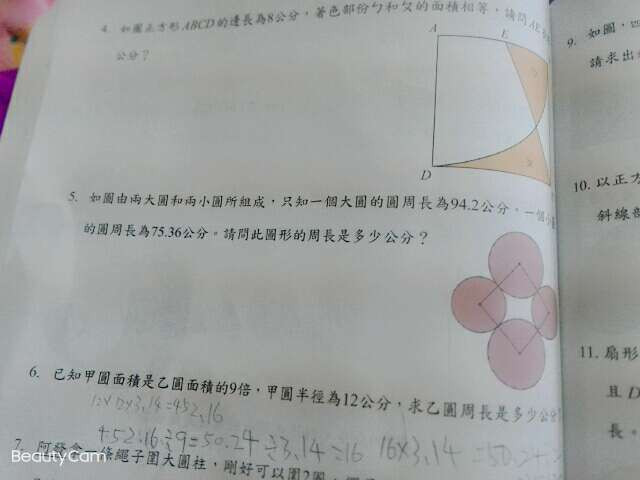 4. 如圖正方形ABCD的邊長為8公分，著色部份ㄅ和ㄆ的面積相等，請問AE
公分？
A
E
ㄅ
ㄆ
D
5. 如圖由兩大圓和兩小圓所組成，只知一個大圓的圓周長為94.2公分，一個小
的圓周長為75.36公分。請問此圖形的周長是多少公分？
6. 已知甲圓面積是乙圓面積的9倍，甲圓半徑為12公分，求乙圓周長是多少公分
12×12×3.14=452.16
452.16÷9=50.24÷3.14=16 16×3.14=50.24
7. 阿發拿一條繩子圍大圓柱，剛好可以圍2圈
9. 如圖，四
請求出
10. 以正方
斜線部
11. 扇形
且D
長。
BeautyCam